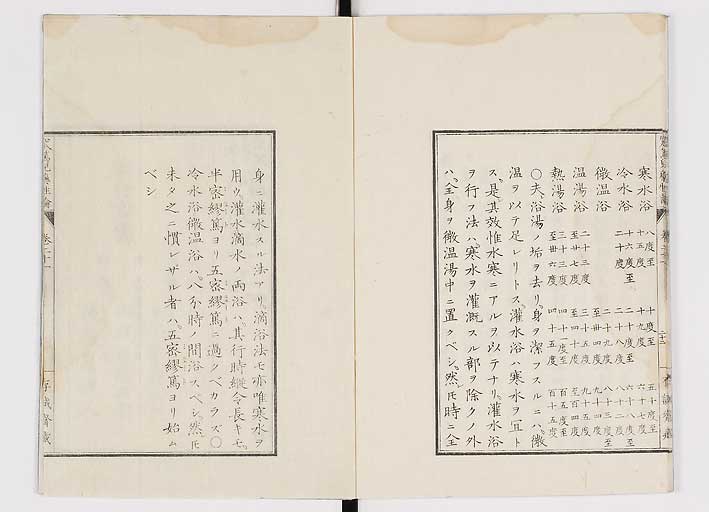 寒水浴 八度至十五度 十度至十九度 五十度至六十七度
冷水浴 十六度至二十度 二十度至二十八度 六十八度至八十二度
微温浴 二十九度 八十三度至
温湯浴 二十三度至廿七度 至卅四度 九十四度
熱湯浴 三十三度至卅六度 四十一度至四十五度 百五度至百十五度
〇夫浴湯ノ垢ヲ去リ身ヲ潔フスルニハ微
温ヲ以テ足レリトス灌水浴ハ寒水ヲ宜ト
ス是其效惟水寒ニアルヲ以テナリ灌水浴
ヲ行フ法ハ寒水ヲ灌漑スル部ヲ除クノ外
ハ全身ヲ微温湯中ニ置クベシ然𪜈時ニ全
身ニ灌水スル法アリ滴浴法モ亦唯寒水ヲ
用ウ灌水滴水ノ両浴ハ其行時縦令長キモ
半密繆篤ヨリ五密繆篤ニ過クベカラズ〇
冷水浴微温浴ハ八分時ノ間浴スベシ然𪜈
未タ之ニ慣レザル者ハ五密繆篤ヨリ始ム
ベシ